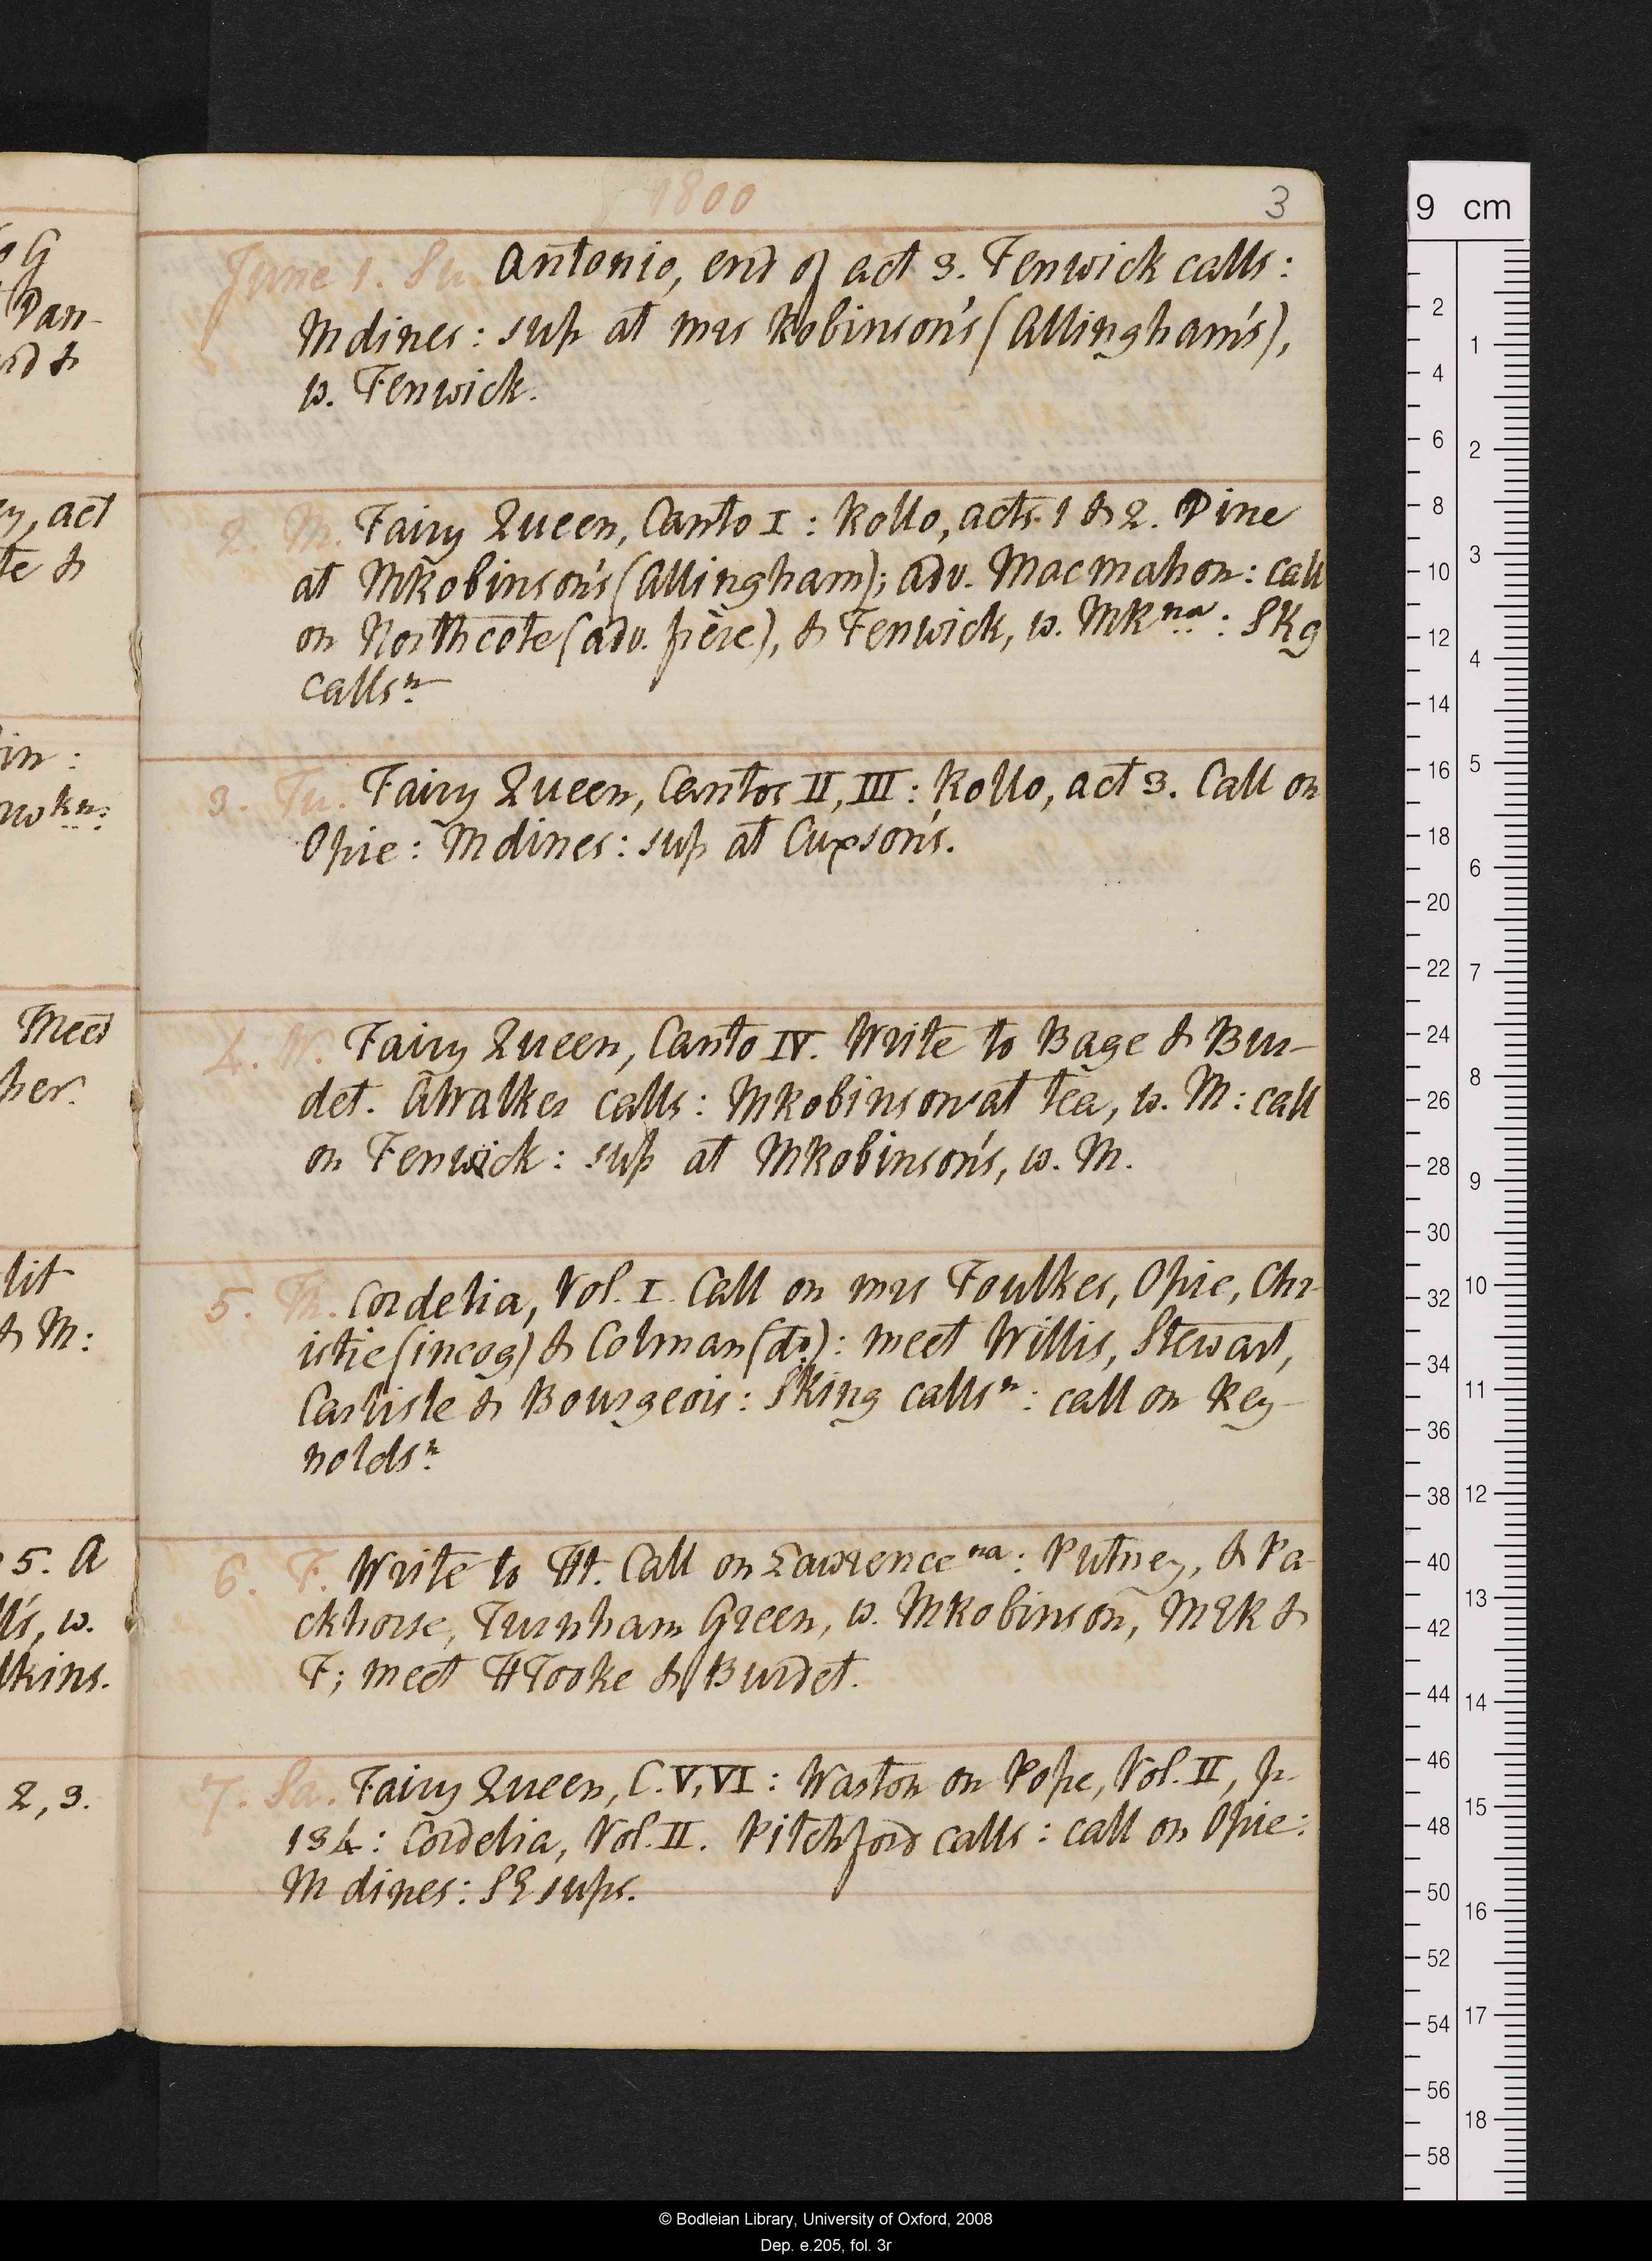 o G
Dan-
rd &
y, act
te &
in:
wkn:
Meet
her.
lit
& M:
5. A
ll's, w.
lkins.
2, 3.
1800
3
June 1. Su. Antonio, end of act 3. Fenwick calls:
M dines: sup at mrs Robinson's (Allingham's),
w. Fenwick.
2. M. Fairy Queen, Canto I: Rollo, acts 1 & 2. Dine
at MRobinson's (Allingham); adv. Macmahon: call
on Northcote (adv. frère), & Fenwick, w. MR na: SKg
calls n
3. Tu. Fairy Queen, Cantos II, III: Rollo, act 3. Call on
Opie: M dines: sup at Cuxson's.
4. W. Fairy Queen, Canto IV. Write to Bage & Bur-
det. AWalker calls: MRobinson at tea, w. M: call
on Fenwick: sup at MRobinson's, w. M.
5. Th. Cordelia, Vol. I. Call on mrs Foulkes, Opie, Chr-
istie (incog) & Colman (do): meet Willis, Stewart,
Carlisle & Bourgeois: SKing calls n: call on Rey-
nolds n
6. F. Write to Ht. Call on Lawrence na: Putney, & Pa-
ckhorse, Turnham Green, w. MRobinson, MER &
F; meet HTooke & Burdet.
7. Sa. Fairy Queen, C. V, VI: Warton on Pope, Vol. II, p.
134: Cordelia, Vol. II. Pitchford calls: call on Opie:
M dines: SE sups.
9 cm
2
4
6
8
10
12
14
16
18
20
22
24
26
28
30
32
34
36
38
40
42
44
46
48
50
52
54
56
58
1
2
3
4
5
6
7
8
9
10
11
12
13
14
15
16
17
18
© Bodleian Library, University of Oxford, 2008
Dep. e.205, fol. 3r